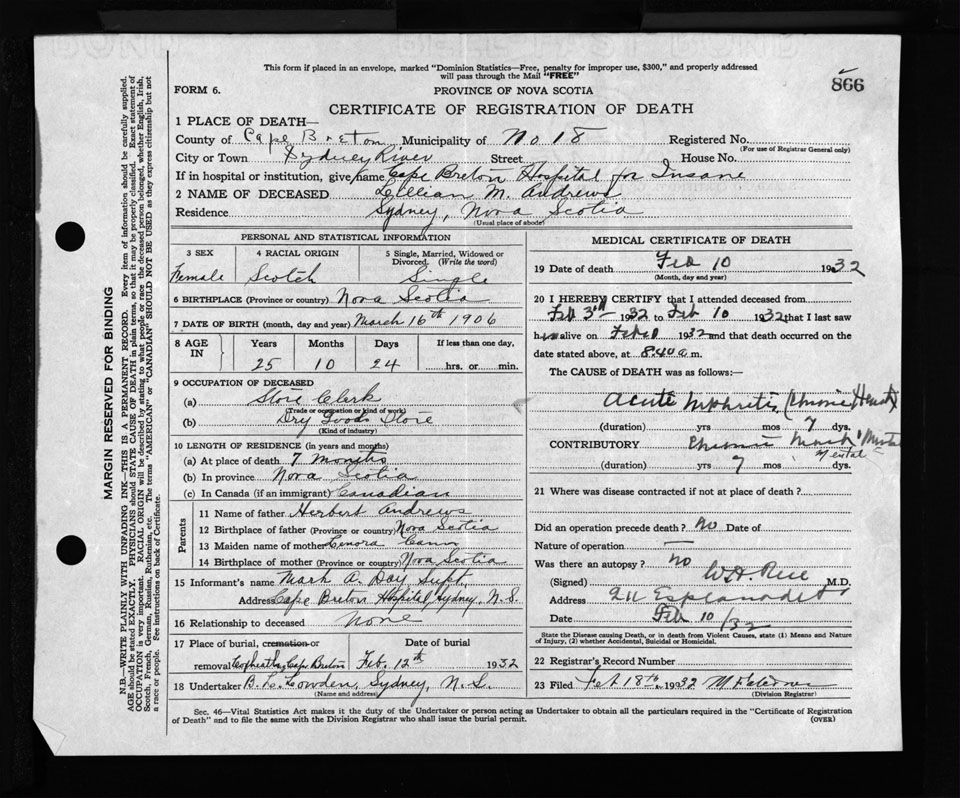 This form if placed in an envelope, marked "Dominion Statistics—Free, penalty for improper use, $300," and properly addressed
will pass through the Mail "FREE"
866
FORM 6.
PROVINCE OF NOVA SCOTIA
CERTIFICATE OF REGISTRATION OF DEATH
1 PLACE OF DEATH—
County of Cape Breton Municipality of No 18 Registered No.
(For use of Registrar General only)
City or Town Sydney River Street House No.
If in hospital or institution, give name Cape Breton Hospital for Insane
2 NAME OF DECEASED Lillian M. Andrews
Residence Sydney, Nova Scotia
(Usual place of abode)
PERSONAL AND STATISTICAL INFORMATION
3 SEX 4 RACIAL ORIGIN 5 Single, Married, Widowed or
Divorced. (Write the word)
Female Scotch Single
6 BIRTHPLACE (Province or country) Nova Scotia
7 DATE OF BIRTH (month, day and year) March 16th 1906
8 AGE IN Years Months Days If less than one day,
25 10 24 hrs. or min.
9 OCCUPATION OF DECEASED
(a) Store Clerk
(Trade or occupation or kind of work)
(b) Dry Goods Store
(Kind of industry)
10 LENGTH OF RESIDENCE (in years and months)
(a) At place of death 7 months
(b) In province Nova Scotia
(c) In Canada (if an immigrant) Canadian
Parents
11 Name of father Herbert Andrews
12 Birthplace of father (Province or country) Nova Scotia
13 Maiden name of mother Cann
14 Birthplace of mother (Province or country) Nova Scotia
15 Informant's name Mark A. Day Supt.
Address Cape Breton Hospital, Sydney, N.S.
16 Relationship to deceased None
17 Place of burial, cremation or Date of burial
removal Coxheath, Cape Breton Feb. 12th 1932
18 Undertaker Sydney, N.S.
(Name and address)
MEDICAL CERTIFICATE OF DEATH
19 Date of death Feb 10 1932
(Month, day and year)
20 I HEREBY CERTIFY that I attended deceased from
Feb 3rd 1932 to Feb 10 1932 that I last saw
h alive on Feb 10 1932 and that death occurred on the
date stated above, at 8.40 a m.
The CAUSE of DEATH was as follows:
Acute Nephritis (Chronic Heart)
(duration) yrs mos 7 dys.
CONTRIBUTORY Chronic
Mental
(duration) yrs 7 mos dys.
21 Where was disease contracted if not at place of death?
Did an operation precede death? No Date of
Nature of operation —
Was there an autopsy? No
(Signed) W.H. Rice M.D.
Address 211 Esplanade
Date Feb 10/32
State the Disease causing Death, or in death from Violent Causes, state (1) Means and Nature
of Injury, (2) whether Accidental, Suicidal or Homicidal.
22 Registrar's Record Number
23 Filed Feb 18th 1932
(Division Registrar)
Sec. 46—Vital Statistics Act makes it the duty of the Undertaker or person acting as Undertaker to obtain all the particulars required in the "Certificate of Registration
of Death" and to file the same with the Division Registrar who shall issue the burial permit.
(OVER)
MARGIN RESERVED FOR BINDING
N.B.—WRITE PLAINLY WITH UNFADING INK—THIS IS A PERMANENT RECORD. Every item of information should be carefully supplied.
AGE should be stated EXACTLY. PHYSICIANS should STATE CAUSE OF DEATH in plain terms, so that it may be properly classified. Exact statement of
OCCUPATION is very important. RACIAL ORIGIN will be described by stating to what people or race the deceased person belonged, whether English, Irish,
Scotch, French, German, Russian, Ruthenian, etc. The terms "AMERICAN" or "CANADIAN" SHOULD NOT BE USED as they express citizenship but not
a race or people. See instructions on back of Certificate.